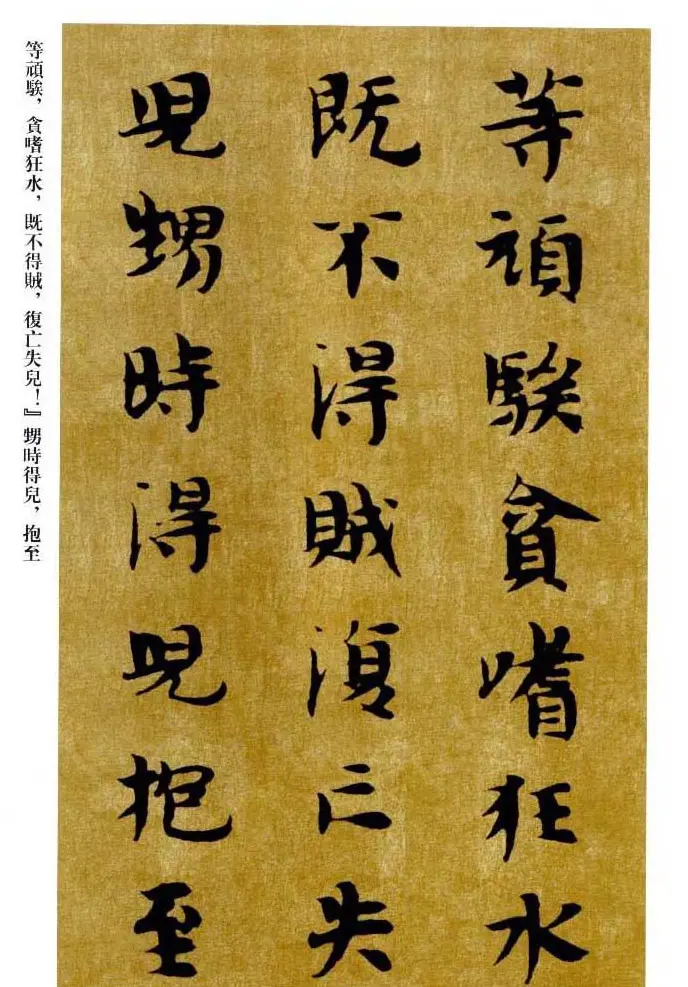 等頑騃貪嗜狂水
既不得賊復亡失
兒甥時得兒抱至
等頑騃，貪嗜狂水，既不得賊，復亡失兒！』甥時得兒，抱至